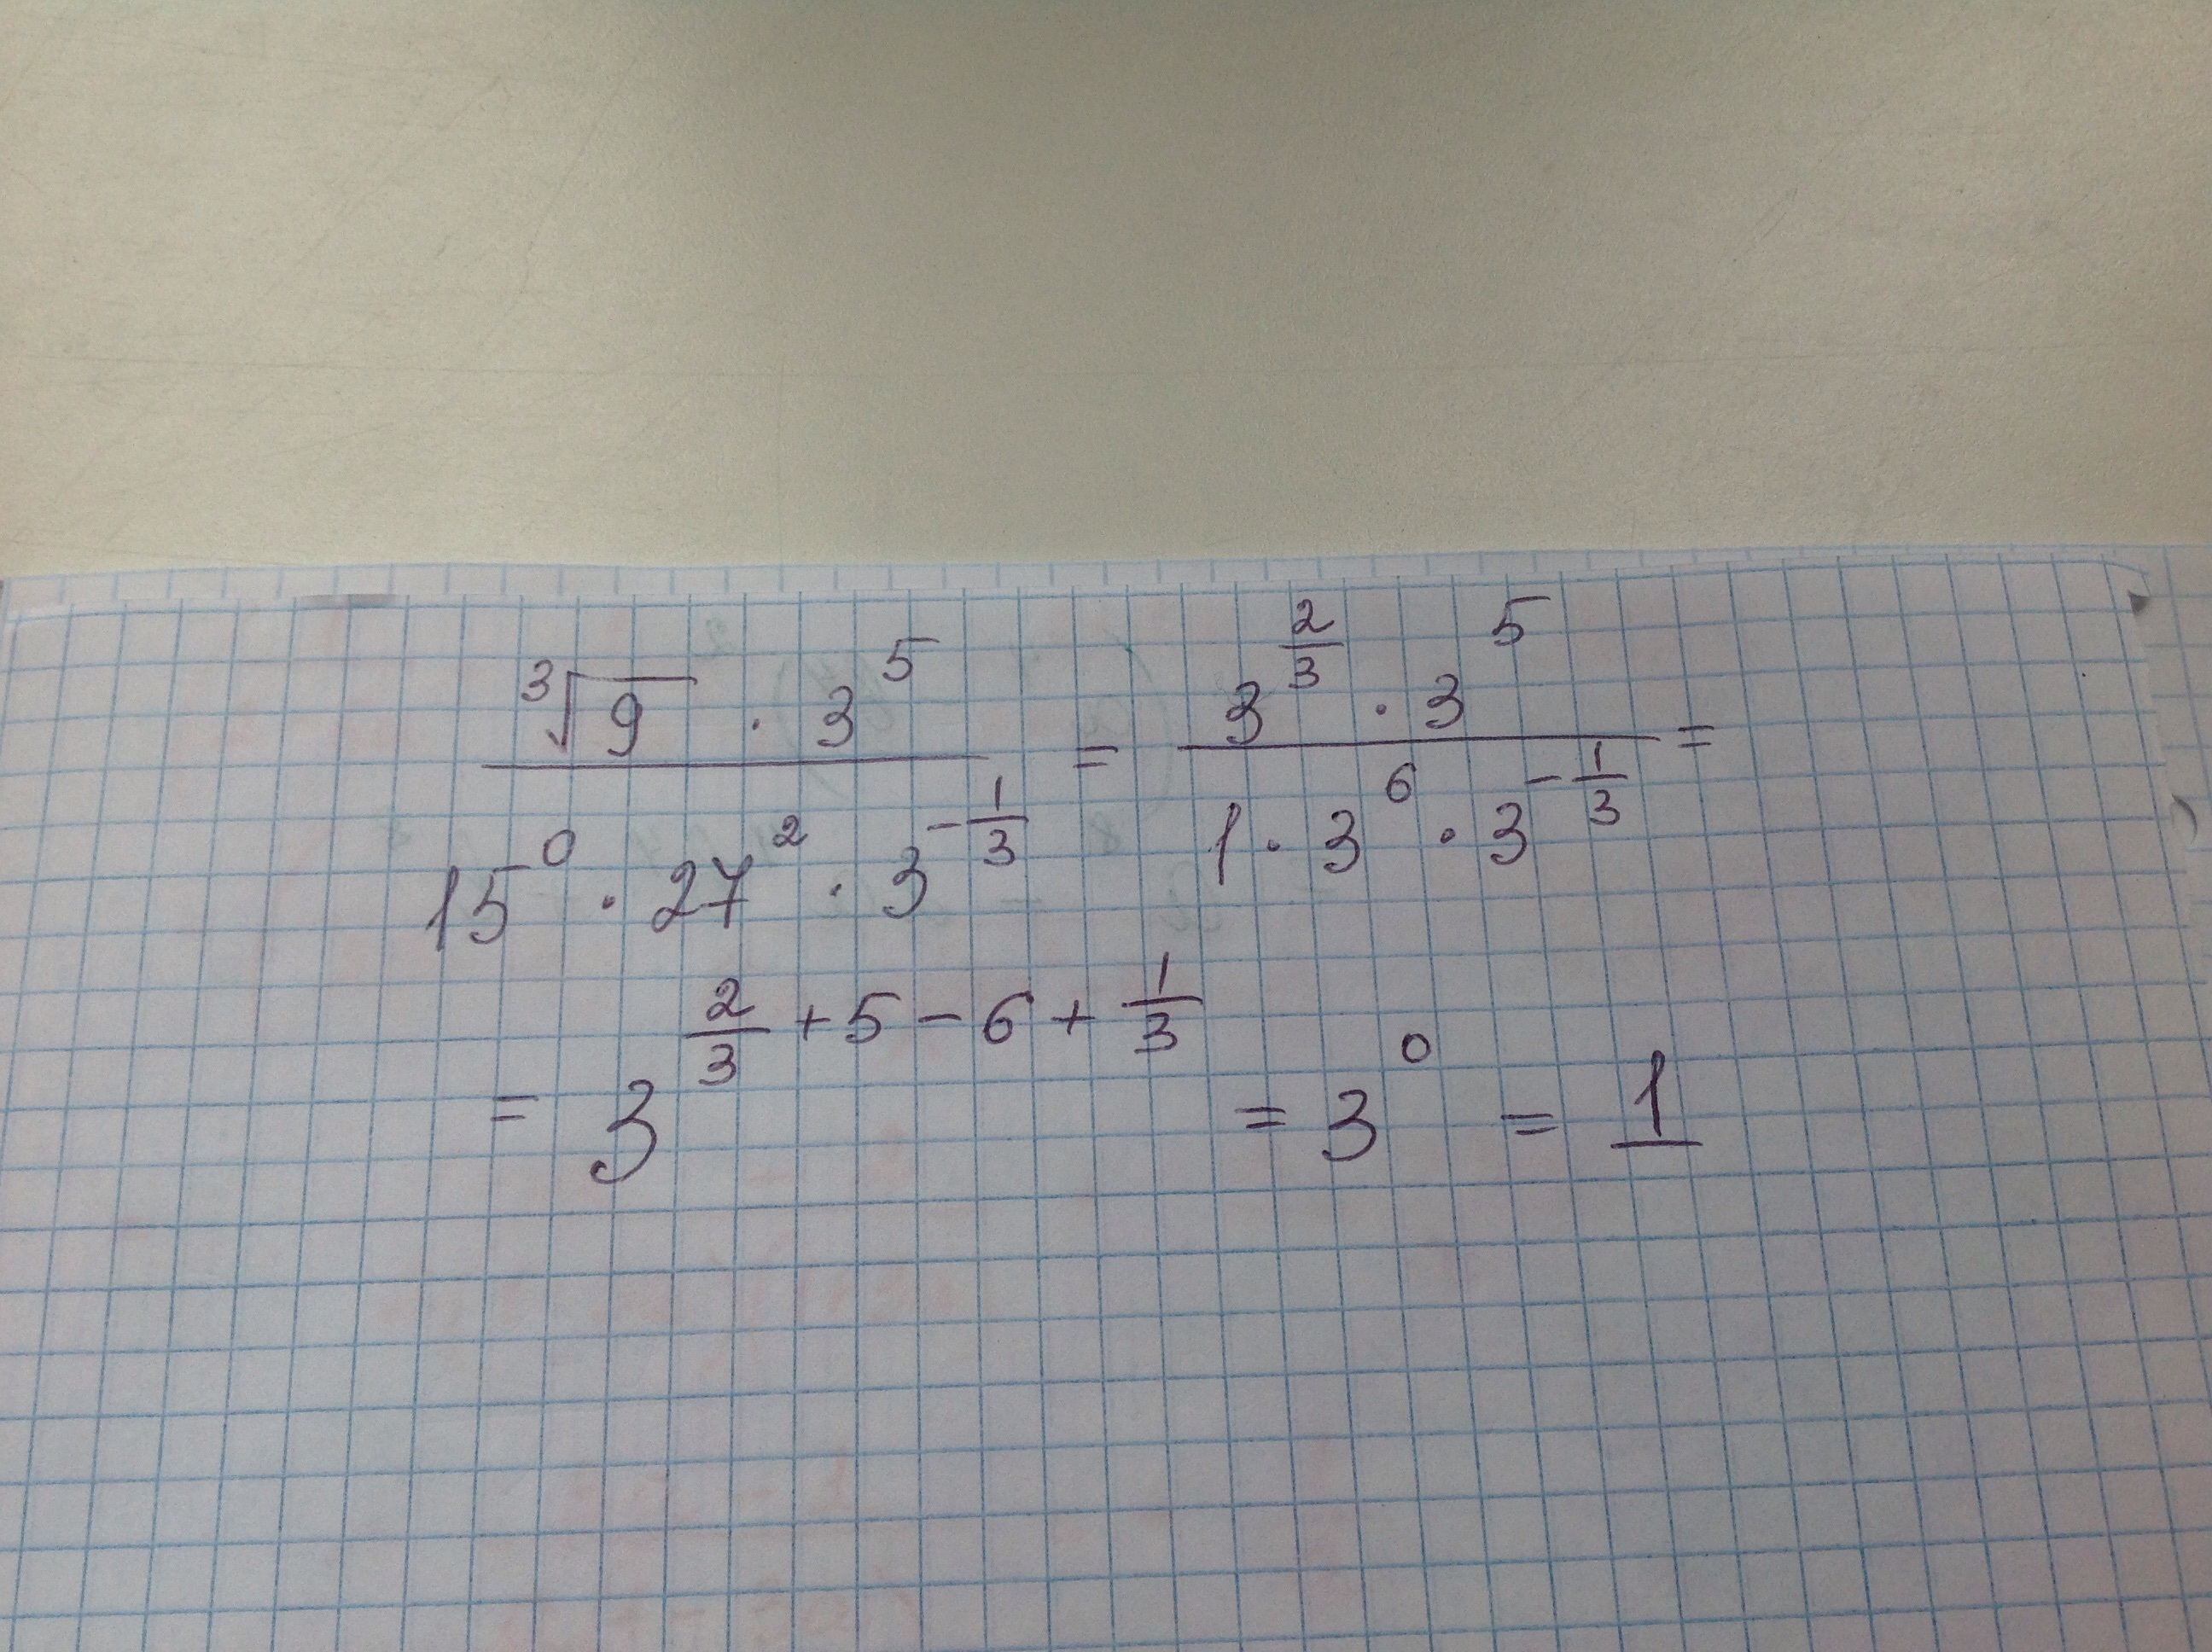 \frac{\sqrt[3]{9} \cdot 3^5}{15^0 \cdot 27^2 \cdot 3^{-\frac{1}{3}}} = \frac{3^{\frac{2}{3}} \cdot 3^5}{1 \cdot 3^6 \cdot 3^{-\frac{1}{3}}} =
= 3^{\frac{2}{3} + 5 - 6 + \frac{1}{3}} = 3^0 = 1